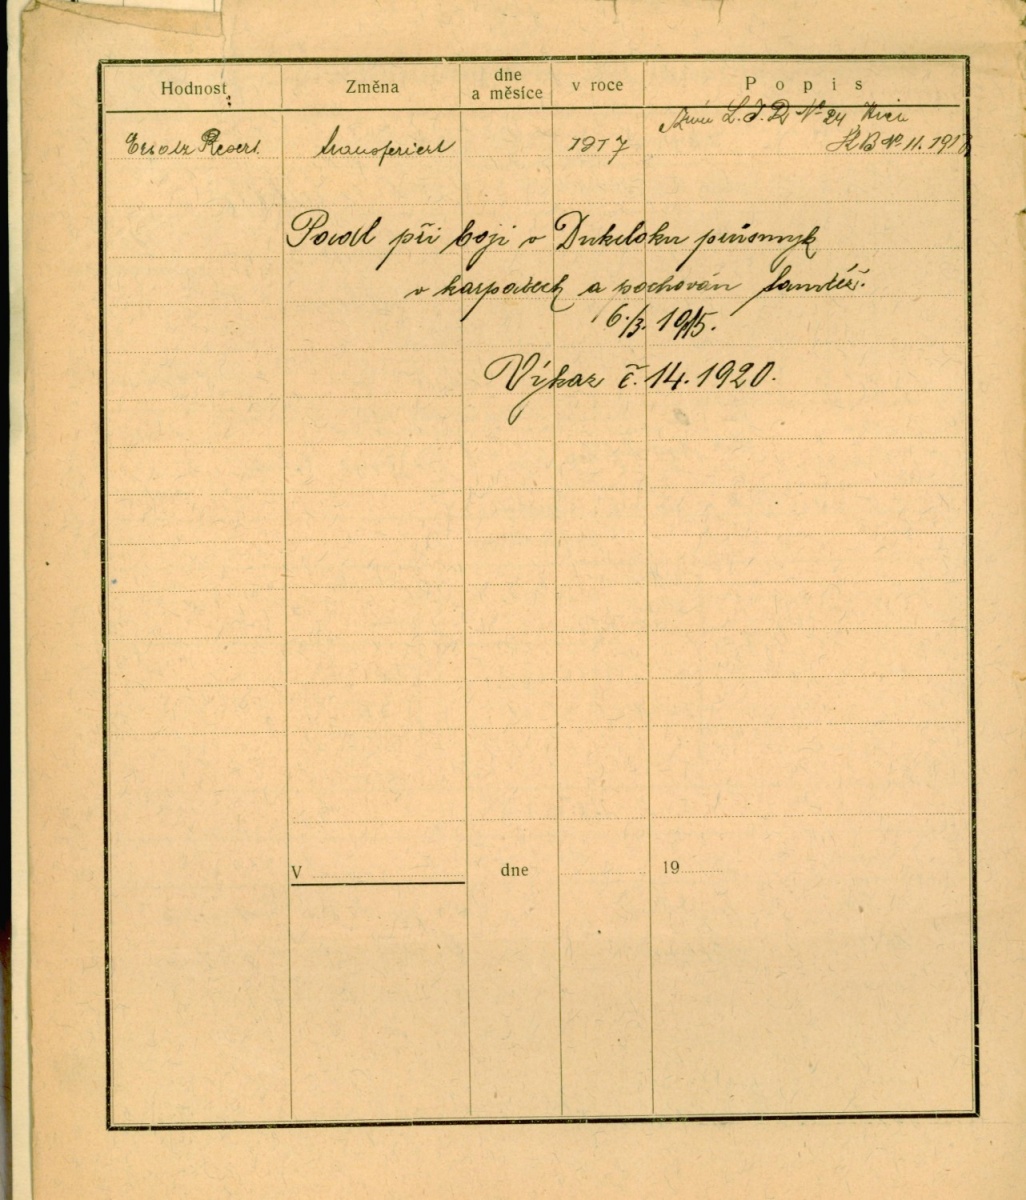 Hodnost Změna dne a měsíce v roce Popis
L. I. R. No 24 Wien
Ersatz Reserv. transferiert 1917 K B No 11. 1918
Padl při boji v Dukelsku průsmyk
v karpatech a pochován tamtéž.
6./3. 1915.
Výkaz č. 14. 1920.
V dne 19